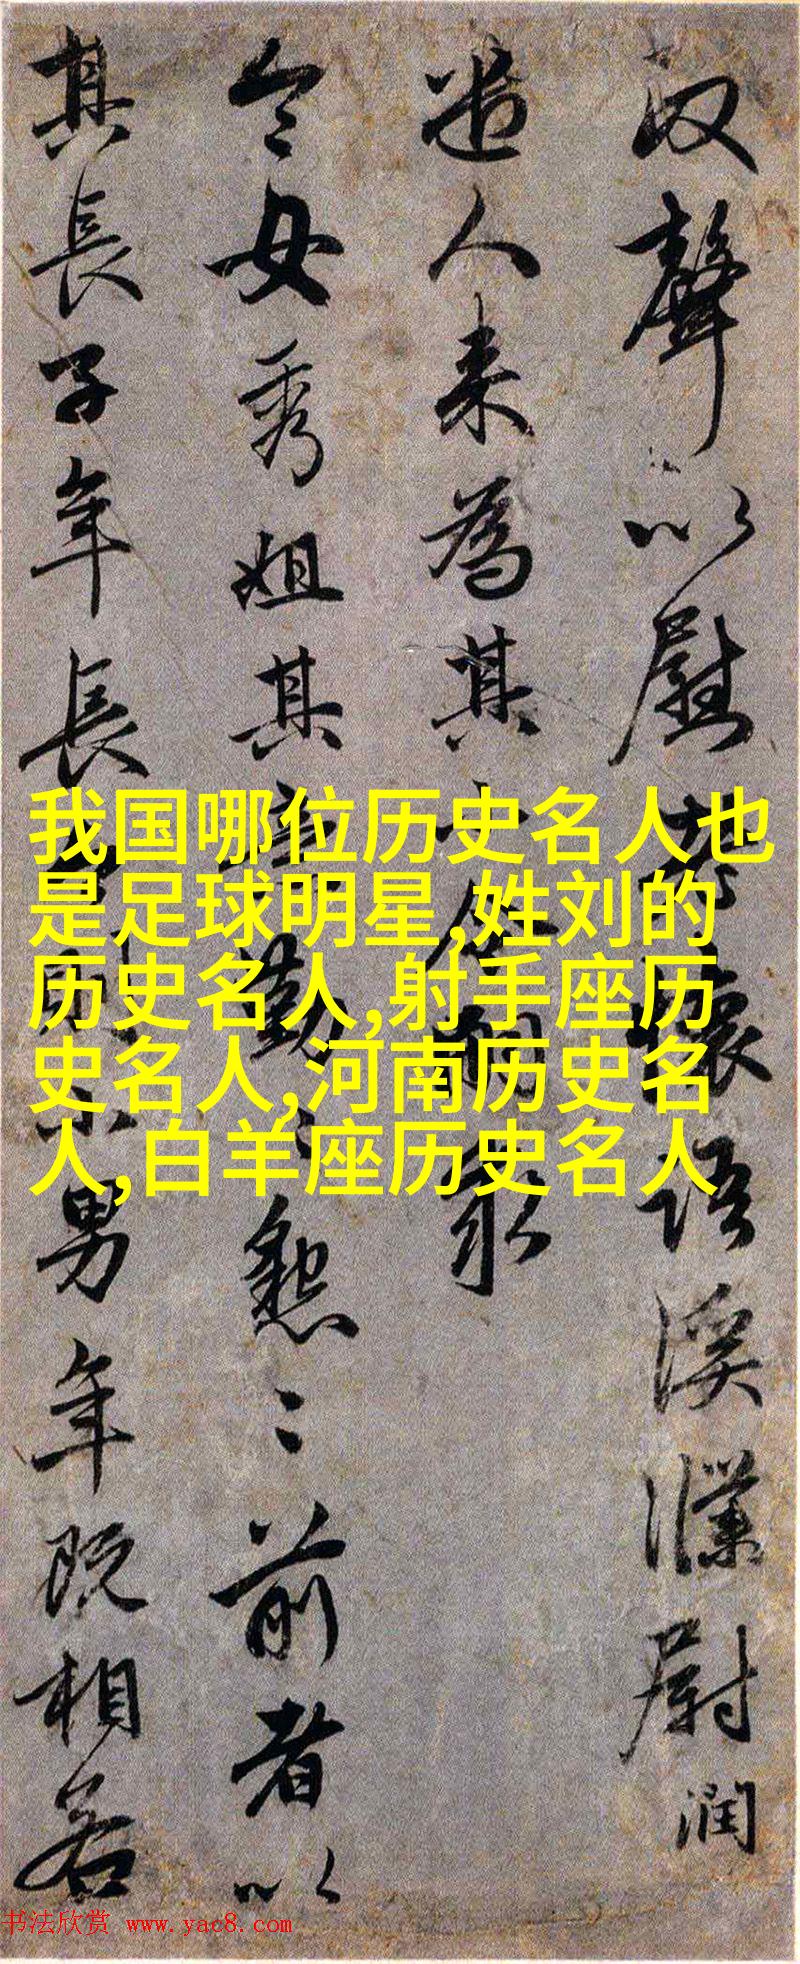 聲以慰懷語溪濮尉潤
遣人来為其嗣求
令女秀姐其意勤〻懇〻前者以
其長子年長小男年既相若
我国哪位历史名人也
是足球明星,姓刘的
历史名人,射手座历
史名人,河南历史名
人,白羊座历史名人
书法欣赏 www.yac8.com